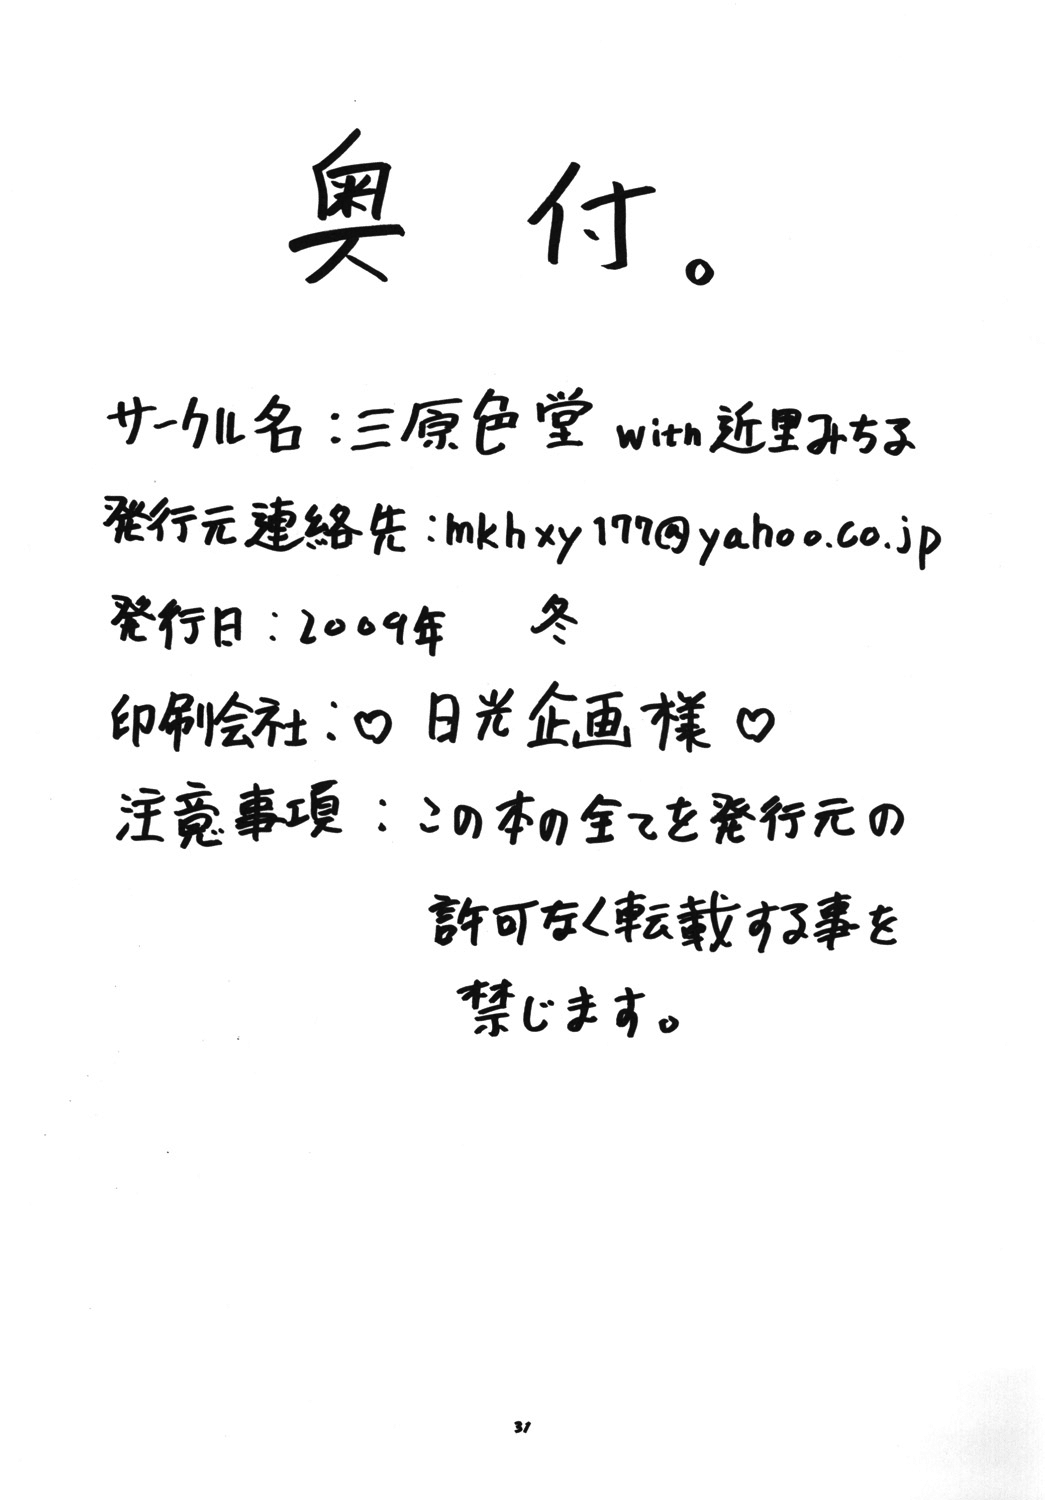 奥付。
サークル名:三原色堂 with近里みちる
発行元連絡先:mkhxy177@yahoo.co.jp
発行日:2009年 冬
印刷会社:♡ 日光企画様 ♡
注意事項:この本の全てを発行元の
許可なく転載する事を
禁じます。
31